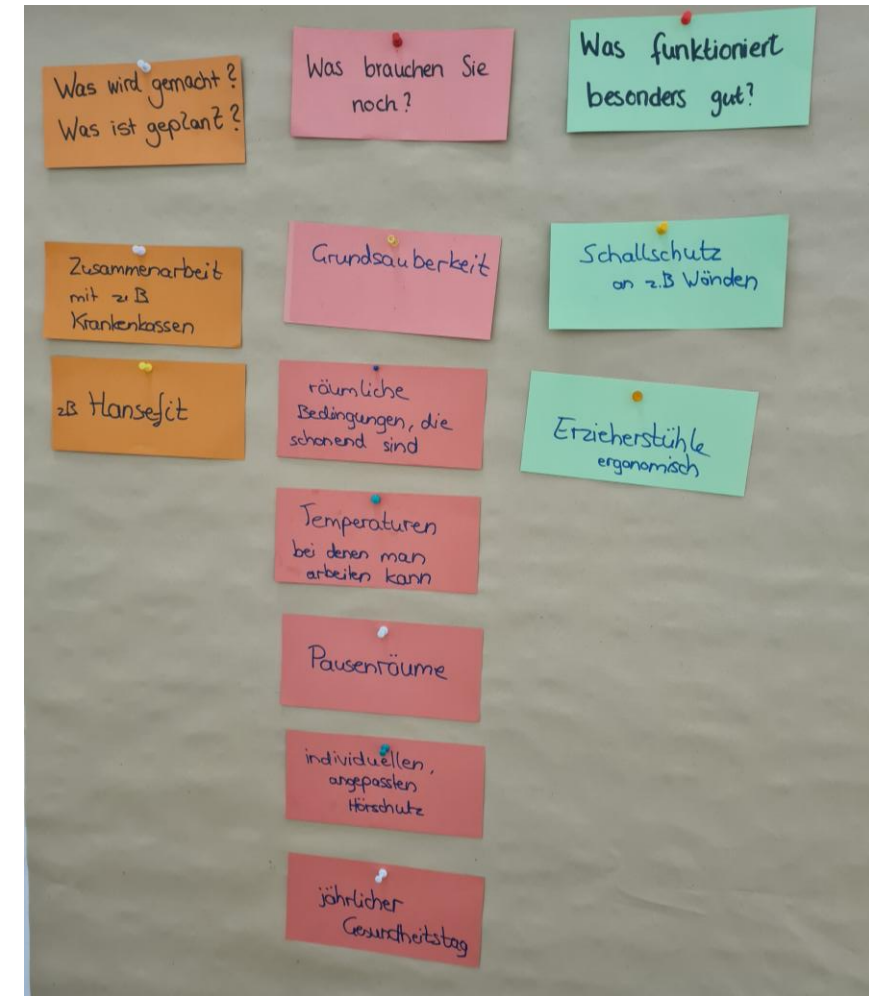 Was wird gemacht?
Was ist geplant?
Zusammenarbeit
mit z.B
Krankenkassen
zB Hansefit
Was brauchen Sie
noch?
Grundsauberkeit
räumliche
Bedingungen, die
schonend sind
Temperaturen
bei denen man
arbeiten kann
Pausenräume
individuellen,
angepassten
Hörschutz
jährlicher
Gesundheitstag
Was funktioniert
besonders gut?
Schallschutz
an z.B Wänden
Erzieherstühle
ergonomisch